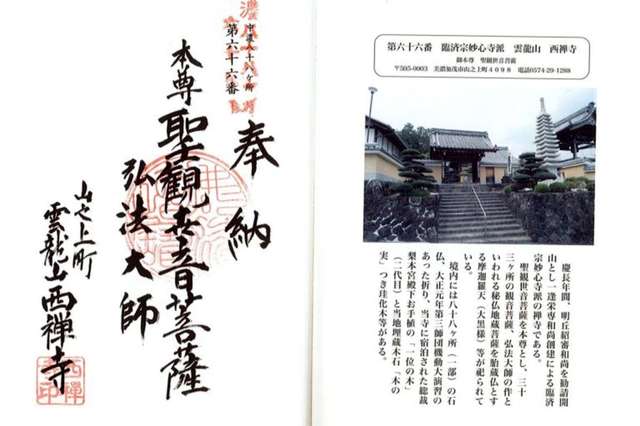 第六十六番　臨済宗妙心寺派　雲龍山　西禅寺
御本尊　聖観世音菩薩
〒505-0003　美濃加茂市山之上町４０９８　電話0574-29-1288
慶長年間、明丘紹審和尚を勧請開
山とし一逢栄専和尚創建による臨済
宗妙心寺派の禅寺である。
聖観世音菩薩を本尊とし、三十
三ヶ所の観音菩薩、弘法大師の作と
いわれる秘仏地蔵菩薩を胎蔵仏とす
る摩迦羅天（大黒様）等が祀られて
いる。
境内には八十八ヶ所（一部）の石
仏、大正元年第三師団機動大演習の
あった折り、当寺に宿泊された総裁
梨本宮殿下お手植の「一位の木」
（二代目）と当地埋蔵木石「木の
実」つき珪化木等がある。
奉納
中濃八十八ヶ所
第六十六番
本尊聖観世音菩薩
弘法大師
山之上町
雲龍山西禅寺